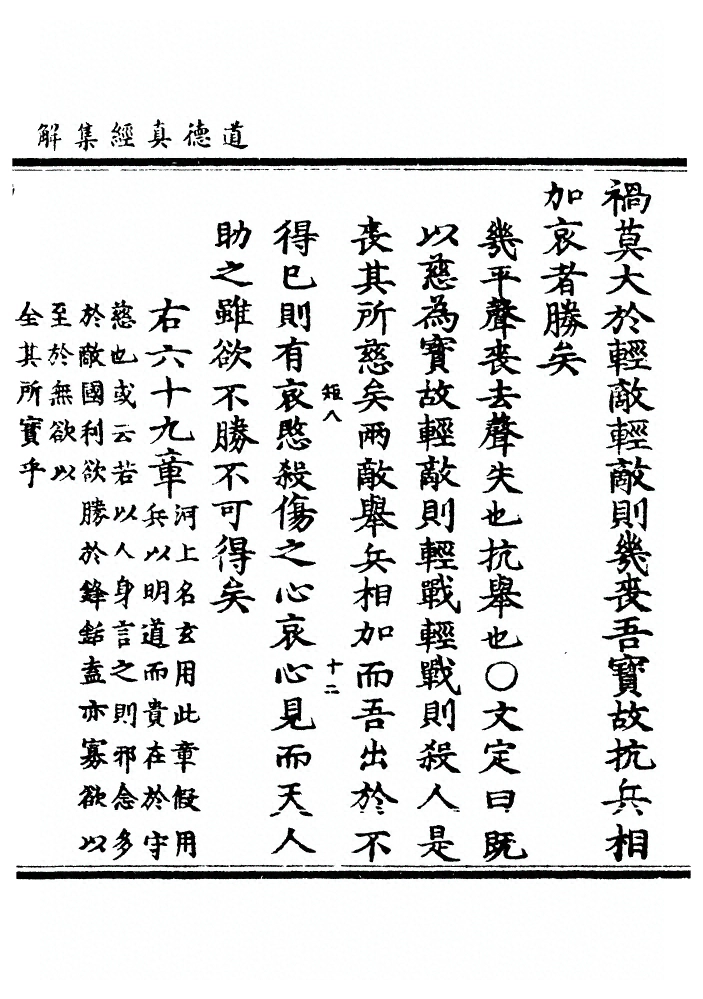 道德真經集解
禍莫大於輕敵輕敵則幾喪吾寶故抗兵相
加哀者勝矣
幾平聲喪去聲失也抗舉也○文定曰既
以慈為寶故輕敵則輕戰輕戰則殺人是
喪其所慈矣兩敵舉兵相加而吾出於不
短八
十二
得已則有哀愍殺傷之心哀心見而天人
助之雖欲不勝不可得矣
右六十九章
河上名玄用此章假用
兵以明道而貴在於守
慈也或云若以人身言之則邪念多
於敵國利欲勝於鋒銛盍亦寡欲以
至於無欲以
全其所寶乎